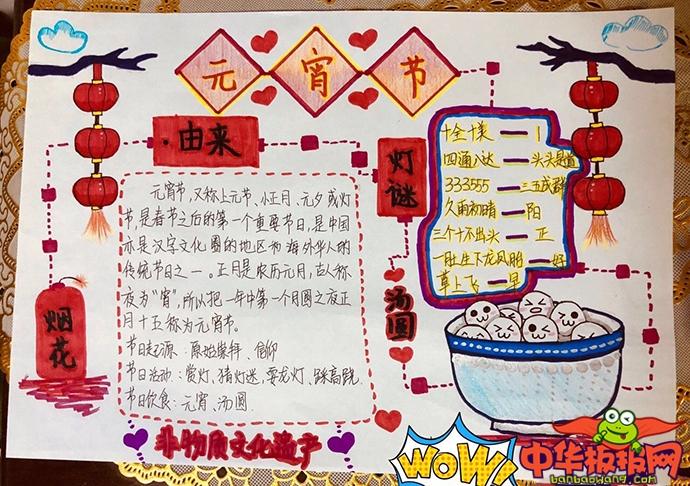 元宵节
由来
元宵节,又称上元节、小正月、元夕或灯
节,是春节之后的第一个重要节日,是中国
亦是汉字文化圈的地区和海外华人的
传统节日之一。正月是农历元月,古人称
夜为“宵”,所以把一年中第一个月圆之夜正
月十五称为元宵节。
节日起源:原始崇拜、信仰
节日活动:赏灯、猜灯迷,耍龙灯、踩高跷.
节日饮食:元宵、汤圆.
烟花
非物质文化遗产
灯谜
十全十美 — 1
四通八达 — 头头是道
333555 — 三五成群
久雨初晴 — 阳
三个十不出头 — 正
一肚生下龙凤胎 — 好
草上飞 — 早
汤圆
WOW!
中华板报网
banbaowang.com